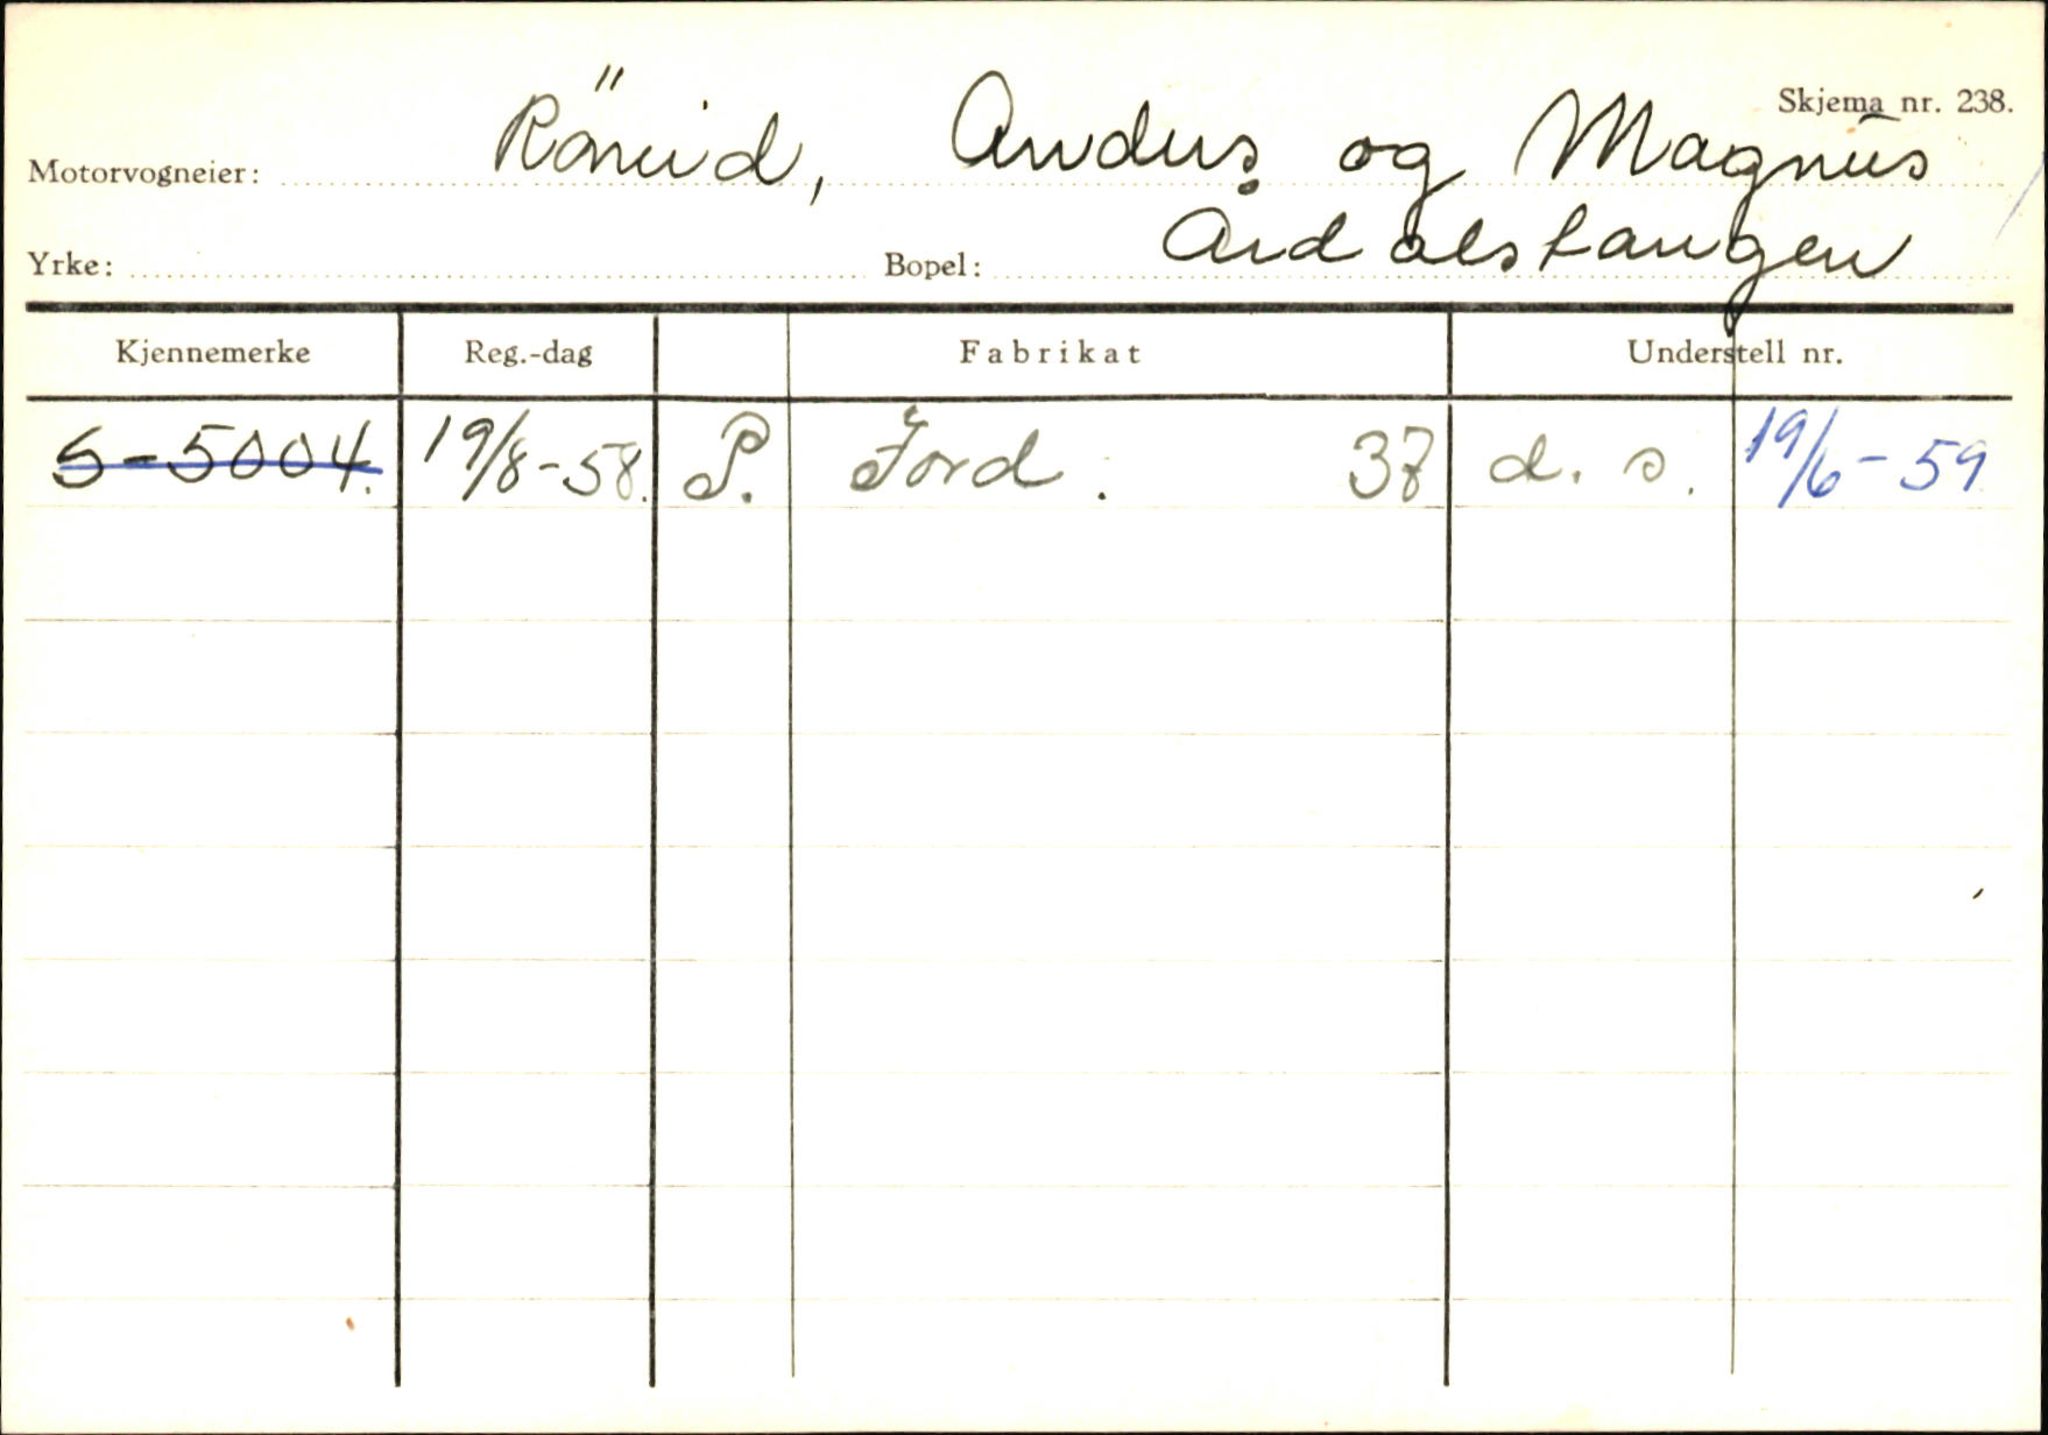 Skjema nr. 238.
Motorvogneier: Röneid, Anders og Magnus
Yrke: Bopel: Årdalstangen
Kjennemerke Reg.-dag Fabrikat Understell nr.
S-5004. 19/8-58. P. Ford. 37 d. s. 19/6-59